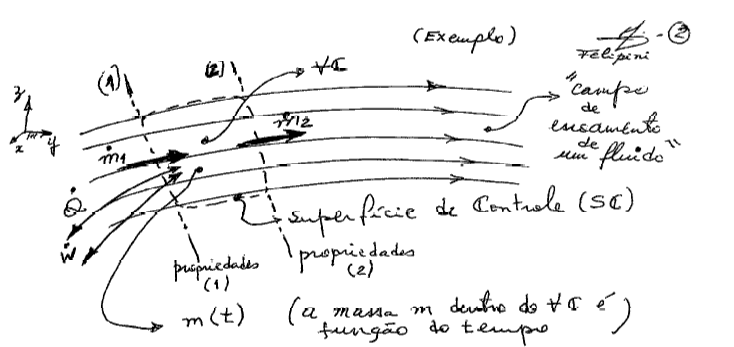 (Exemplo)
Felipini
- 2
(1)
(2)
∀C
z
x
y
"Campo
de
escoamento
de
um fluido"
ṁ1
ṁ2
Q̇
Ẇ
Superfície de Controle (SC)
propriedades
(1)
propriedades
(2)
m(t) (a massa m dentro do ∀C é
função do tempo)